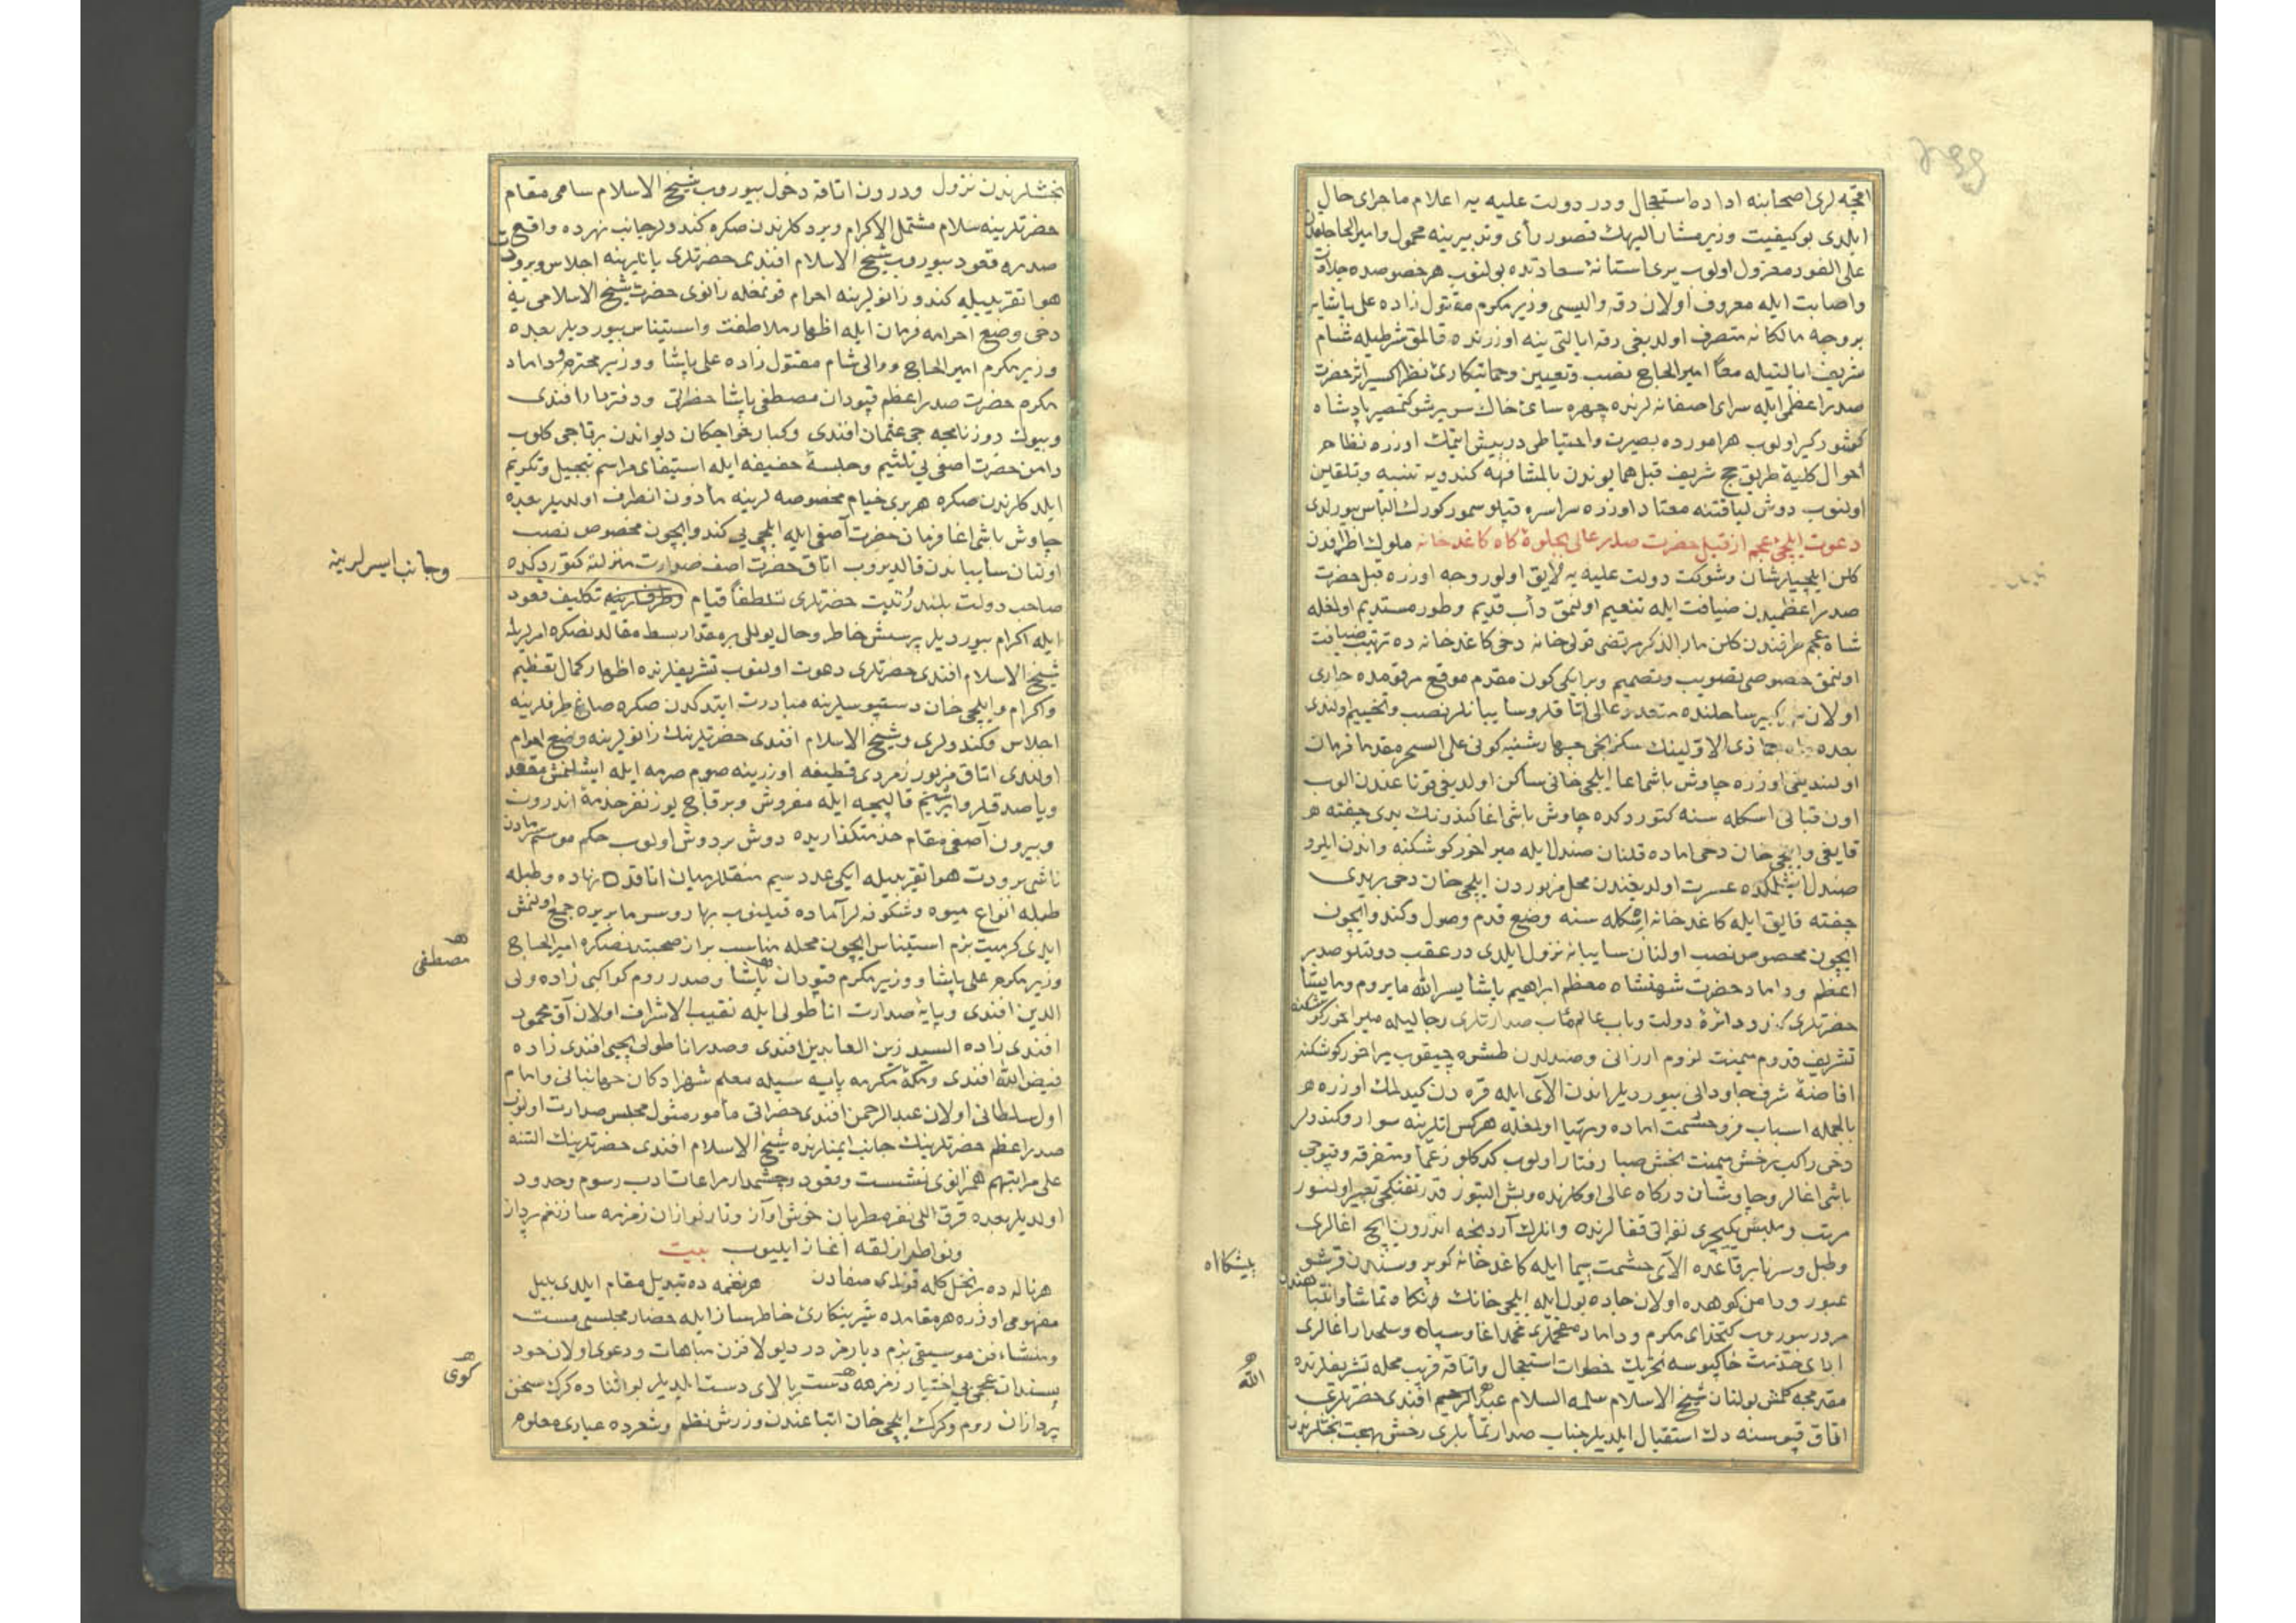 اقچه لری اصحابنه اداده استعجال ودر دولت علیه یه اعلام ماجرای حال
ایلدی بو کیفیت وزیر مشار الیهك قصور رأی وتدبیرینه محمول وامیر الحاجلقدن
علی الفور معزول اولوب بری استانهٔ سعادتده بولنوب هر خصوصده
واصابت ایله معروف اولان رقه والیسی وزیر مکرم مقتول زاده علی پاشایه
بر وجه مالکانه متصرف اولدیغی رقه ایالتی ینه اوزرنده قالمق شرطیله شام
شریف ایالتیله معًا امیر الحاج نصب وتعیین وحماتیکاریٔ نظر اکسیر اثر حضرت
صدر اعظمی ایله سرای اصفانه لرنده چهره سایٔ خاك سریر شوکتمصیر پادشاه
کشورکیر اولوب هر امورده بصیرت واحتیاطی درپیش ایتمك اوزره نظام
احوال کلیهٔ طریق حج شریف قبل همایوندن بالمشافهه کندویه تنبیه وتلقین
اولنوب دوش لیاقتنه معتاد اوزره سراسره قپلو سمور کورك الباس بیورلدی
دعوت ایلچیٔ عجم از قبل حضرت صدر عالی بجلوهٔ کاه کاغدخانه ملوك اطرافدن
کلن ایلچیلر شان وشوکت دولت علیه یه لایق اولور وجه اوزره قبل حضرت
صدر اعظمیدن ضیافت ایله تنعیم اولنمق دأب قدیم وطور مستدیم اولمغله
شاه عجم طرفندن کلن مار الذکر مرتضی قولی خانه دخی کاغدخانه ده ترتیب ضیافت
اولنمق خصوصی تصویب وتصمیم وبر ایکی کون مقدم موقع مرقومده جاری
اولان نهر کبیر ساحلنده متعدد عالی اتاقلر وسایبانلر نصب وتخییم اولندی
بعده ماه جماذی الاوّلینك سکزنجی چهارشنبه کونی علی السحر مقدما فرمان
اولندیغی اوزره چاوش باشی اغا ایلچی خانی ساکن اولدیغی قوناغندن الوب
اون قپانی اسکله سنه کتوردکده چاوش باشی اغا کندونك یدی چفته
قایغی وایلچی خان دخی اماده قلنان صندل ایله میراخور کوشکنه واندن ایلرو
صندل ایشلمکده عسرت اولدیغندن محل مزبوردن ایلچی خان دخی بر یدی
چفته قایق ایله کاغدخانه اسکله سنه وضع قدم وصول وکندو ایچون
ایچون مخصوص نصب اولنان سایبانه نزول ایلدی در عقب دولتلو صدر
اعظم وداماد حضرت شهنشاه معظم ابراهیم پاشا یسر الله مایروم ومایشا
حضرتلری کندو دائرهٔ دولت وباب عالم مٱب صدارتلری رجالیله میراخور کوشکنه
تشریف قدوم میمنت لزوم ارزانی وصندلدن طشره چیقوب میراخور کوشکنه
افاضهٔ شرف جاودانی بیوردیلر اندن الای ایله قره دن کیدلمك اوزره
بالجمله اسباب فر وحشمت اماده ومهیا اولمغله هرکس اتلرینه سوار وکندولر
دخی راکب رخش میمنت بخش صبا رفتار اولوب کدکلو زعما ومتفرقه وقپوجی
باشی اغالر وچاوشان درکاه عالی اوکلرنده وبش التیوز قدر تفنکچی تعبیر اولنور
مرتب وملبس یکیچری نفراتی قفالرنده وانلرك آردنجه اندرون ایچ اغالری
وطبل وسرنا بر قاعده الای حشمت سیما ایله کاغدخانه کوپریسندن قرشو
پیشکاه
عبور ودامن کوهده اولان جاده یول ایله ایلچی خانك تماشا
مرور بیوروب کتخدای مکرم وداماد مفخملری محمد اغا وسپاه وسلحدار اغالری
ادای خدمت خاکپوسه تحریك خطوات استعجال واتاقه قریب محله تشریفلرنده
الله
مقدمجه کلمش بولنان شیخ الاسلام سلمه السلام عبد الرحیم افندی حضرتلری
اتاق قپوسنه دك استقبال ایلدیلر جناب صدارتمآبلری رخش بهجت بخشلرندن
بخشلرندن نزول ودرون اتاقه دخول بیوروب شیخ الاسلام سامی مقام
حضرتلرینه سلام مشتمل الاکرام ویردکلرندن صکره کندولر جانب نهرده واقع
صدره قعود بیوروب شیخ الاسلام افندی حضرتلری یانلرینه اجلاس وبرودت
هوا تقریبیله کندو زانولرینه احرام قونمغله زانوی حضرت شیخ الاسلامی یه
دخی وضع احرامه فرمان ایله اظهار ملاطفت واستیناس بیوردیلر بعده
وزیر مکرم امیر الحاج ووالی شام مقتول زاده علی پاشا ووزیر محترم وداماد
مکرم حضرت صدر اعظم قپودان مصطفی پاشا حضراتی ودفتردار افندی
وبیوك روزنامچه جی عثمان افندی وکبار خواجکان دیواندن برقاچی کلوب
دامن حضرت اصفی یی تلثیم وجلسهٔ خفیفه ایله استیفای مراسم تبجیل وتکریم
ایلدکلرندن صکره هر بری خیام مخصوصه لرینه مأذون انطرف اولدیلر بعده
چاوش باشی اغا فرمان حضرت آصفی ایله ایلچی یی کندو ایچون مخصوص نصب
اولنان سایباندن قالدیروب اتاق حضرت اصف صدارت منزلته کتوردکده
وجانب ایسرلرینه
صاحب دولت بلند رتبت حضرتلری تلطفًا قیام وطرفلرینه تکلیف قعود
ایله اکرام بیوردیلر پرسش خاطر وحال یوللی بر مقدار بسط مقالدنصکره امرلریله
شیخ الاسلام افندی حضرتلری دعوت اولنوب تشریفلرنده اظهار کمال تعظیم
واکرام وایلچی خان دستبوسلرینه مبادرت ایتدکدن صکره صاغ طرفلرینه
اجلاس وکندولری وشیخ الاسلام افندی حضرتلرینك زانولرینه وضع احرام
اولندی اتاق مزبور زمردی قطیفه اوزرینه صوم صرمه ایله ایشلنمش مقعد
ویاصدقلر وابریشم قالیچه ایله مفروش وبرقاچ یوز نفر خدمهٔ اندرون
وبیرون آصفی مقام خدمتکذاریده دوش بر دوش اولوب حکم موسم سرمادن
ناشی برودت هوا تقریبیله ایکی عدد سیم منقللر میان اتاقده نهاده وطبله
طبله انواع میوه وشکوفه لر آماده قیلنوب بهار وسرما بر یره جمع اولنمش
ایدی کرمیت بزم استیناس ایچون محله مناسب براز صحبتدنصکره امیر الحاج
مصطفی
وزیر مکرم علی پاشا ووزیر مکرم قپودان پاشا وصدر روم کواکبی زاده ولی
الدین افندی وپایهٔ صدارت اناطولی ایله نقیب الاشراف اولان آق محمود
افندی زاده السید زین العابدین افندی وصدر اناطولی یحیی افندی زاده
فیض الله افندی ومکهٔ مکرمه پایه سیله معلم شهزادکان جهانبانی وامام
اول سلطانی اولان عبد الرحمن افندی حضراتی مأمور مثول مجلس صدارت اولوب
صدر اعظم حضرتلرینك جانب ایمنلرنده شیخ الاسلام افندی حضرتلرینك التنه
علی مراتبهم همزانوی نشست وقعود وچشمدار مراعات ادب رسوم وحدود
اولدیلر بعده قرق اللی نفر مطربان خوش آواز وتارنوازان زمزمه ساز نغم پرداز
ونواطراز لقه اغاز ایلیوب بیت
هر ناله ده بر نخل کله قوندی صفادن هر نغمه ده تبدیل مقام ایلدی بلبل
مفهومی اوزره هر مقامده شیرینکاریٔ خاطرساز ایله حضار مجلسی مست
ومنشاء فن موسیقی بزم دیارمزدر دیو لافزن مباهات ودعوی اولان خود
کوی
پسندان عجمی بی اختیار زمزمه دست بالای دست ایلدیلر بو اثناده کرك سخن
پردازان روم وکرك ایلچی خان اتباعندن ورزش نظم وشعرده عیاری معلوم